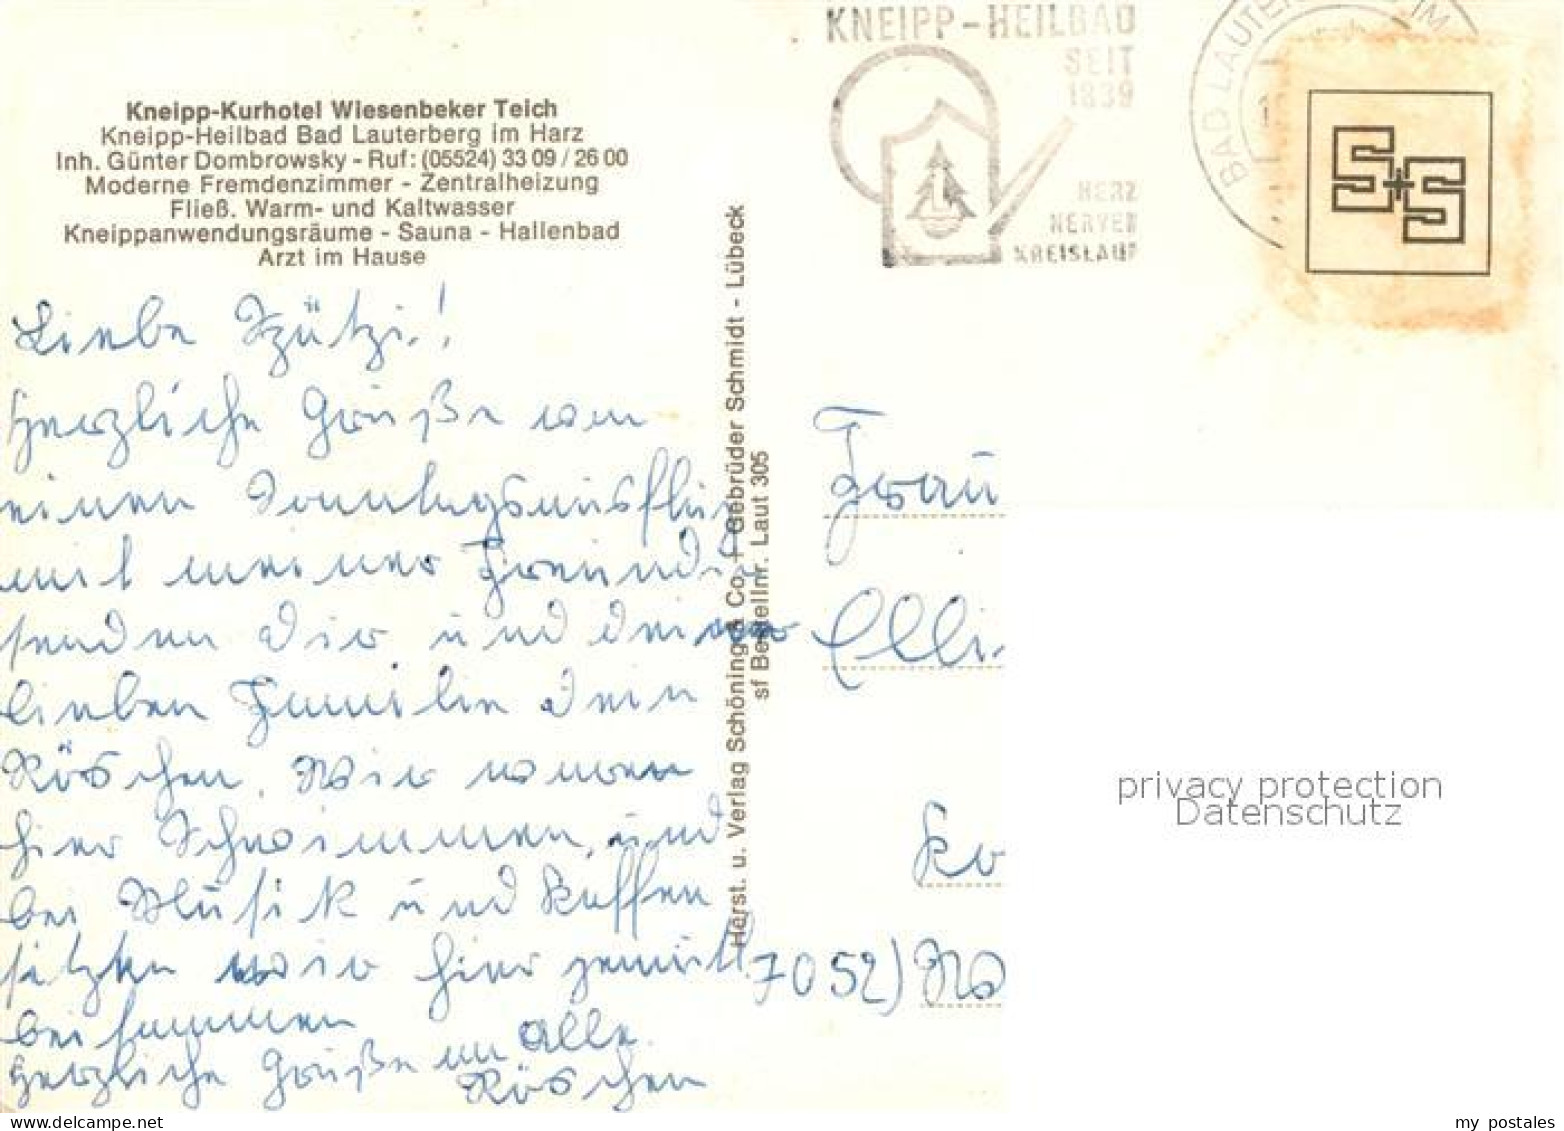 Kneipp-Kurhotel Wiesenbeker Teich
Kneipp-Heilbad Bad Lauterberg im Harz
Inh. Günter Dombrowsky - Ruf: (05524) 33 09 / 26 00
Moderne Fremdenzimmer - Zentralheizung
Fließ. Warm- und Kaltwasser
Kneippanwendungsräume - Sauna - Hallenbad
Arzt im Hause
Liebe
Herzliche Grüße von
einen Sonntagsausflug
mit meiner
senden Dir und deiner
lieben Familie dein
Röschen. Wir waren
hier Schwimmen, und
bei Musik und Kaffee
sitzen wir hier gemütl.
beisammen
Herzliche Grüße an alle.
Röschen
Herst. u. Verlag Schöning & Co. + Gebrüder Schmidt - Lübeck
sf Bestellnr. Laut 305
KNEIPP-HEILBAD
SEIT
1839
HERZ
NERVEN
KREISLAUF
BAD LAUTERBERG IM
S+S
Frau
Elli
7052)
privacy protection
Datenschutz
my postales